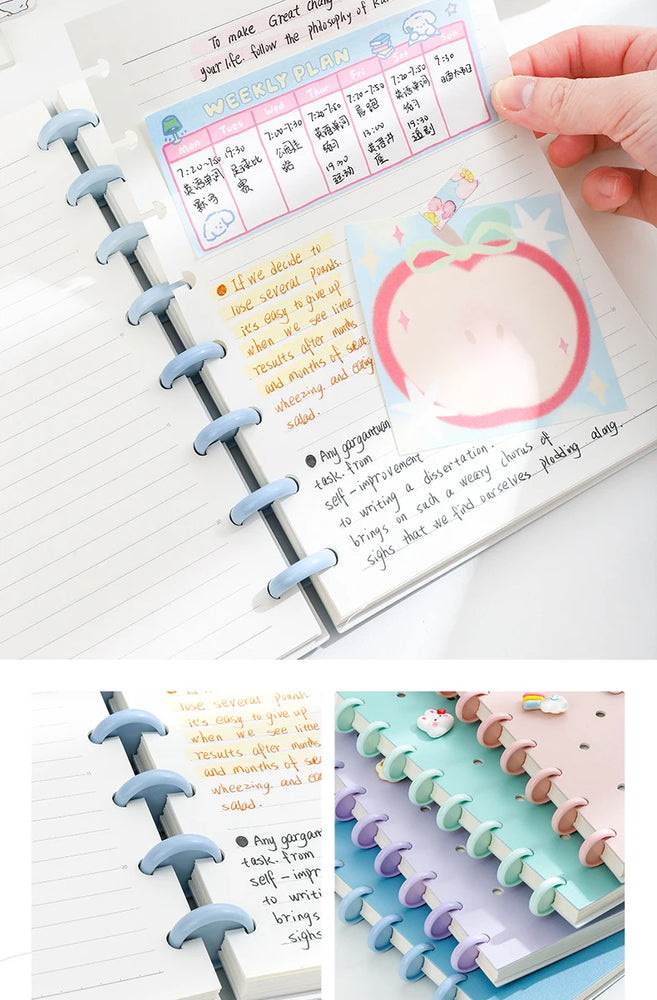 To make Great chang
your life. follow the philosophy of Kai
WEEKLY PLAN
Mon Tues Wed Thur Fri Sat Sun
7:20~7:50
英语单词
默写
19:30
足球比
赛
7:00-7:30
公园走
路
7:20-7:50
英语单词
练习
19:00
运动
7:20-7:50
晨跑
18:00
英语讲
座
7:20-7:50
英语单词
练习
19:30
9:30
If we decide to
lose several pounds.
it's easy to give up
when we see little
results after months
and months of sweat
wheezing. and eating
salad.
Any gargantuan
task. from
self-improvement
to writing a dissertation.
brings on such a weary chorus of
sighs that we find ourselves plodding along.
lose several pounds.
it's easy to give up
when we see little
results after months
and months of swe
wheezing. and eat
salad.
Any gargan
task. from
self-impr
to writi
brings
sighs